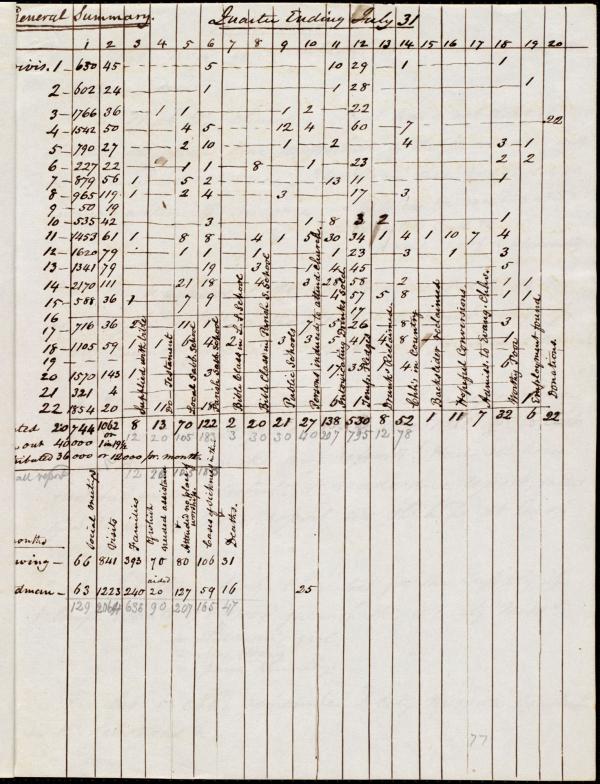 General Summary. Quarter Ending July 31
1 2 3 4 5 6 7 8 9 10 11 12 13 14 15 16 17 18 19 20
Divis. 1 - 630 45 5 10 29 1 1
2 - 602 24 1 1 28 1
3 - 1766 36 1 1 1 2 22
4 - 1542 50 4 5 12 4 60 7 22
5 - 790 27 2 10 1 2 4 3 1
6 - 227 22 1 1 8 1 23 2 2
7 - 879 56 1 5 2 13 11 1
8 - 965 119 1 2 4 3 17 3
9 - 50 19
10 - 535 42 3 1 8 3 2 1
11 - 1453 61 1 8 8 4 1 5 30 34 1 4 1 10 7 4
12 - 1620 79 1 1 1 1 23 3 1 3
13 - 1341 79 19 3 1 4 45 5
14 - 2170 111 21 18 4 3 28 58 2 1 1
15 - 588 36 1 7 9 4 57 5 8 1 1
16 17
17 - 716 36 11 7 5 26 8 3
18 - 1105 59 1 1 2 3 3
19
20 - 1570 143 1 3 6
21 321 4
22 1854 20
Supplied with bible
Do Testament
Local Sabb. School
Parish Sabb. School
Bible Class in L. S School
Bible Class in Parish S. School
Public Schools
Persons induced to attend Church
Intoxicating Drinks Sold
Temp. Pledges
Drunk. Reclaimed
Chln. in Country
Backslider reclaimed
Hopeful Conversions
Admiss. to Evang. Chhs.
Worthy Poor
Employment found
Donations.
20 744 1062 8 13 70 122 2 20 21 27 138 530 8 52 1 11 7 32 6 22
out 40000 or 1 in 19½ 12 20 105 183 3 30 30 40 207 795 12 78
tributed 36000 or 12000 per month.
all report 12 20 105 183
Social meetings
Visits
Families
Of which needed assistance
Attended no place of worship
Cases of Sickness in the
Deaths.
months
wing - 66 841 393 70 80 106 31
aided
dman - 63 1223 240 20 127 59 16 25
129 2064 633 90 207 165 47
77